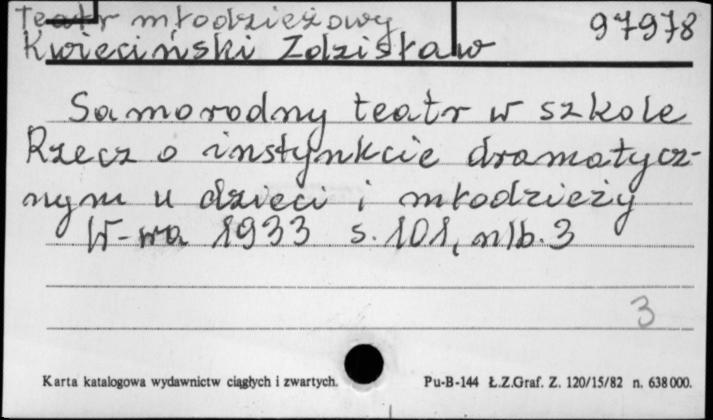 Teatr młodzieżowy 97978
Kwieciński Zdzisław
Samorodny teatr w szkole
Rzecz o instynkcie dramatycz-
nym u dzieci i młodzieży
W-wa 1933 s. 101, nlb. 3
3
Karta katalogowa wydawnictw ciągłych i zwartych. Pu-B-144 Ł.Z.Graf. Z. 120/15/82 n. 638 000.